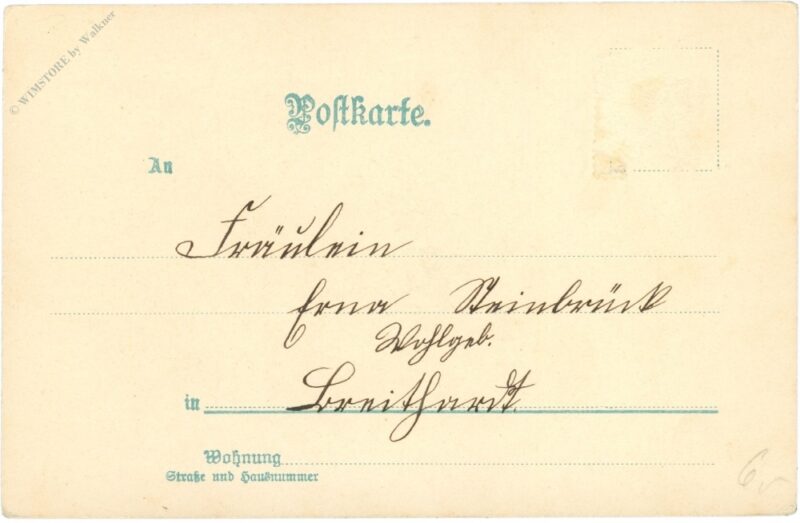 © WIMSTORE by Walkner
Postkarte.
An
Fräulein
Erna Steinbrück
Wohlgeb.
in Breithardt.
Wohnung
Straße und Hausnummer
6,-